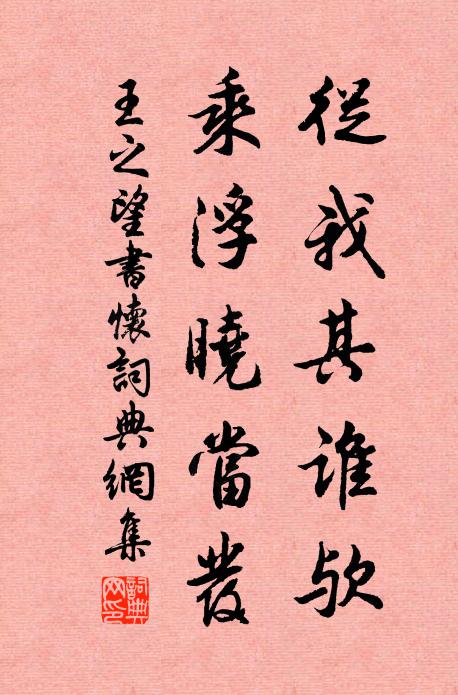 從我其誰欤
乘浮曉當發
王之望書懷詞典網集
詞典網印